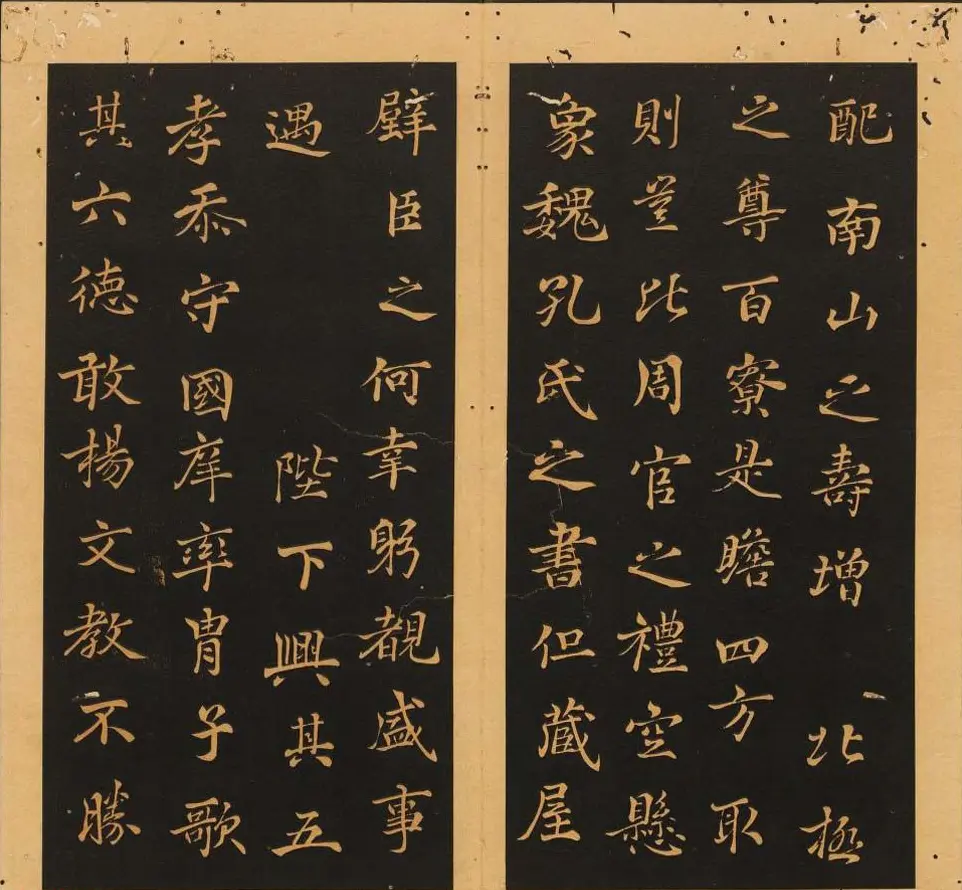 配南山之壽增北極
之尊百寮是瞻四方取
則豈比周官之禮空懸
象魏孔氏之書但藏屋
壁臣之何幸躬覩盛事
遇陛下興其五
孝忝守國庠率胄子歌
其六德敢楊文教不勝